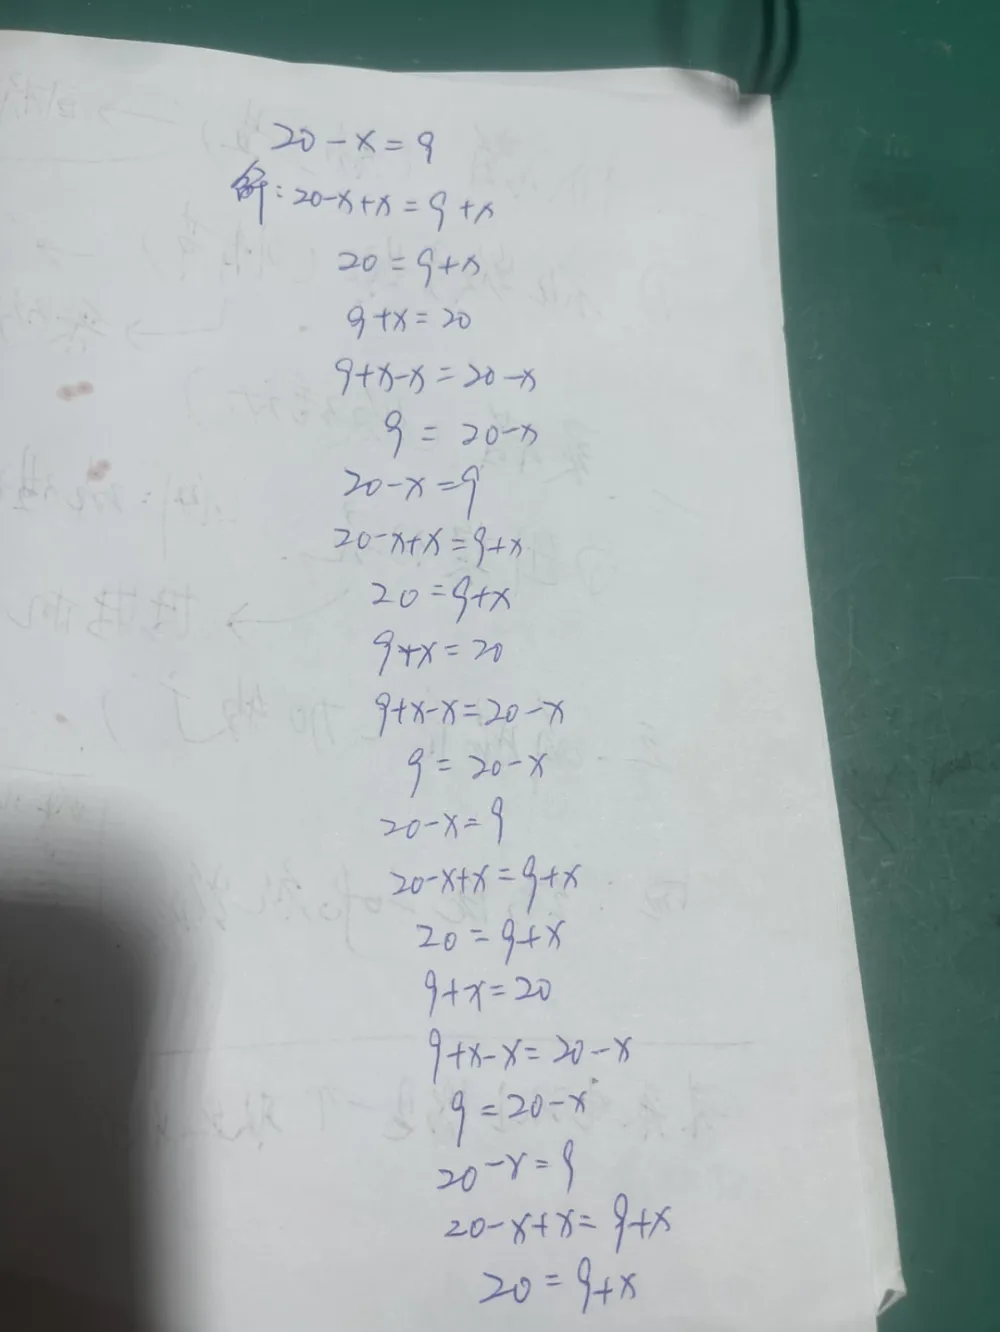 20-x=9
解:20-x+x=9+x
20=9+x
9+x=20
9+x-x=20-x
9=20-x
20-x=9
20-x+x=9+x
20=9+x
9+x=20
9+x-x=20-x
9=20-x
20-x=9
20-x+x=9+x
20=9+x
9+x=20
9+x-x=20-x
9=20-x
20-x=9
20-x+x=9+x
20=9+x